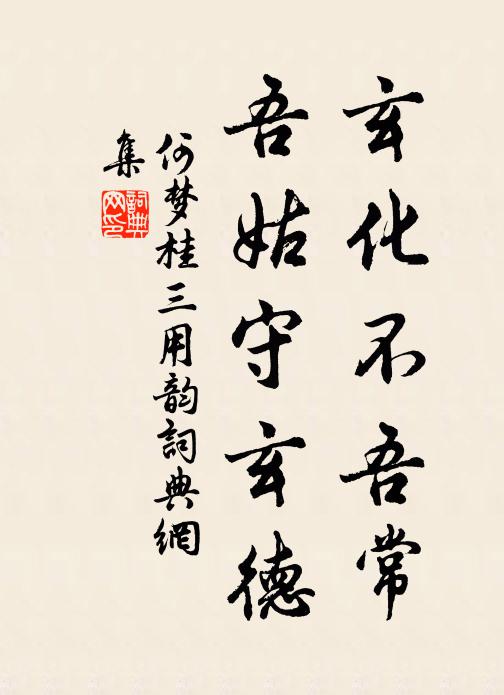 玄化不吾常
吾姑守玄德
何梦桂三用韵詞典網
集
詞典
网印